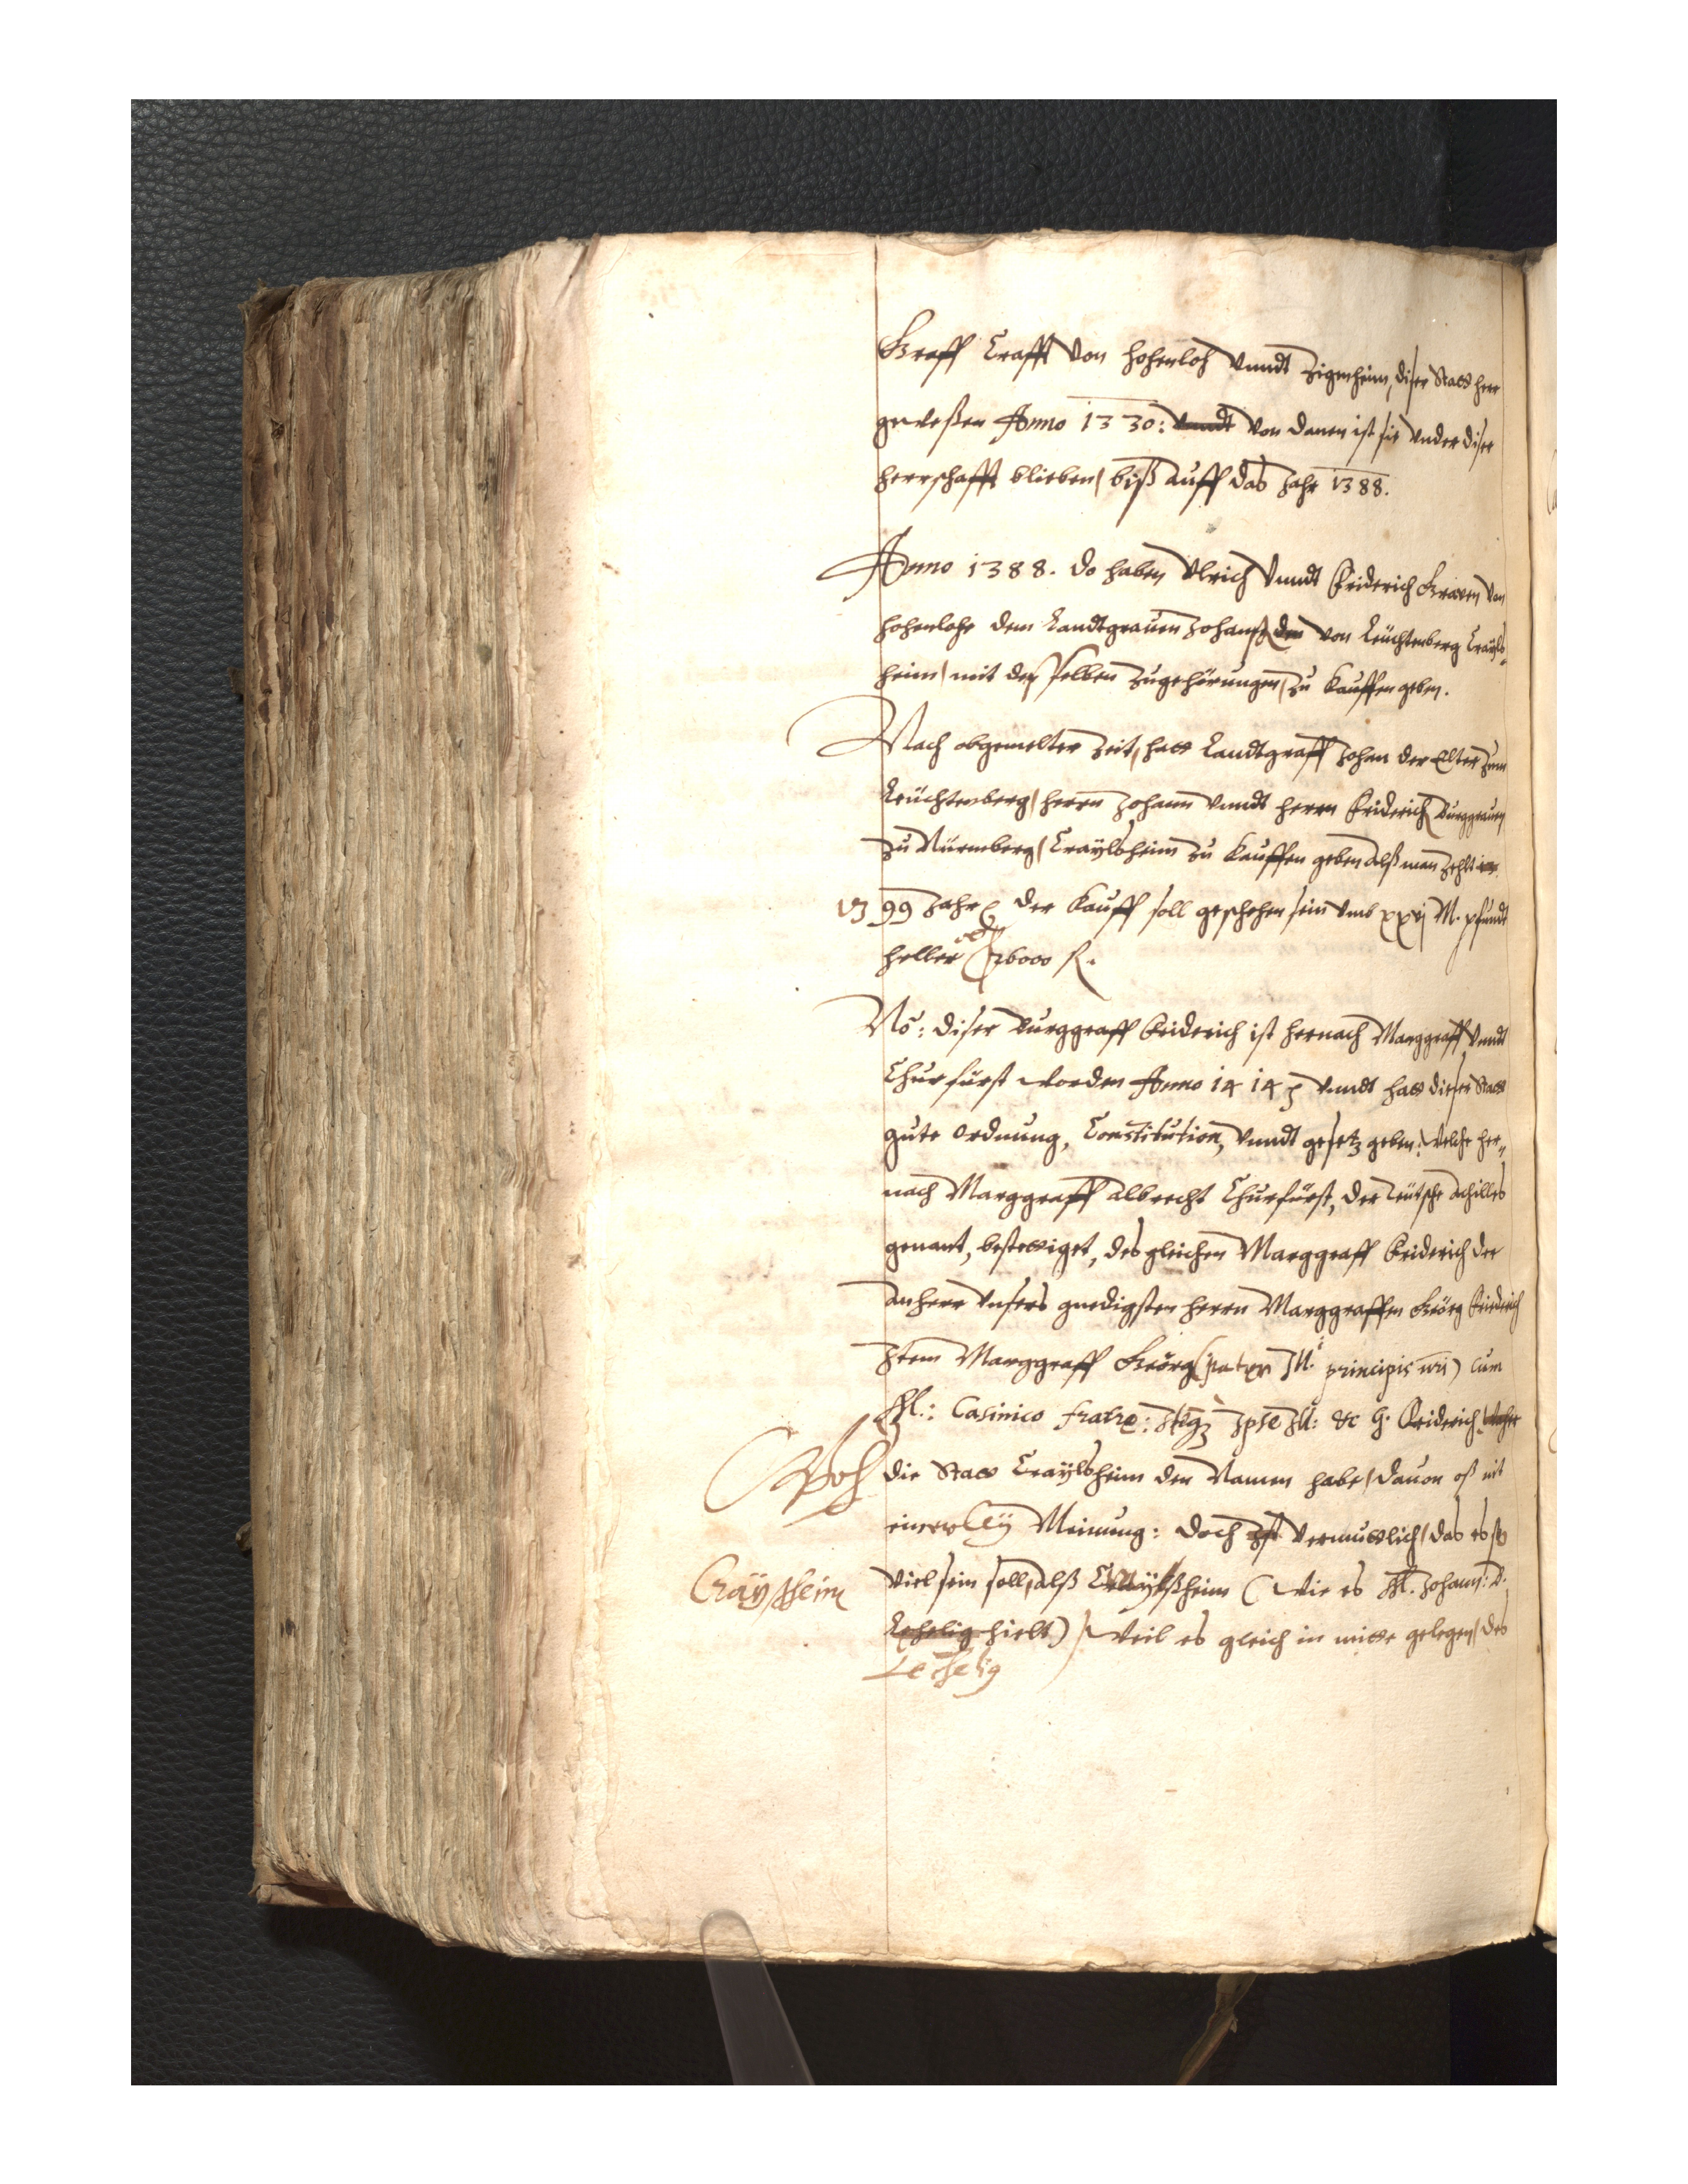 Graff Crafft von Hohenloh vnndt Zigenheim, diser Statt herr
geweßen Anno 1330: vnndt von danen ist sie vnder diser
herrschafft blieben, biß auff das Jahr 1388.
Anno 1388. do haben Vlrich vnndt Friderich Grauen von
Hohenlohe dem Landtgrauen Johanß den von Leüchtenberg Craÿls=
heim, mit deß selben Zugehörungen, zu kauffen geben.
Nach obgemelter Zeit, hatt Landtgraff Johan der Elter zum
Leüchtenberg, herrn Johann vnndt herrn Friderich Burggrauen
zu Nürmberg, Craÿlsheim zu kauffen geben alß man zehlt
1399 Jahr, der kauff soll geschehen sein vmb xxvj M. pfundt
heller 26000 fl.
No: diser Burggraff Friderich ist hernach Marggraff vnndt
Churfürst worden Anno 1414 vnndt hatt dieser Statt
gute ordnung, Constitution, vnndt gesetz geben: welche her=
nach Marggraff Albrecht Churfürst, der Teütsche Achilles
genant, bestettiget, desgleichen Marggraff Friderich der
Anherr vnsers gnedigsten herrn Marggraffen Geörg Friderich
Item Marggraff Geörg (pater Ill. principis nri) cum
Ill.: Casimico fratre: Itqz Ipse Ill: &c G. Friderich. Woher
die Statt Craÿlsheim den Namen habe, dauon ist nit
einerleÿ Meinung: doch Ist vermuttlich, das es so
Craÿßheim
viel sein soll, alß Craÿßheim (wie es M. Johann: D.
Lehelig hielt) weil es gleich in mitte gelegen, des